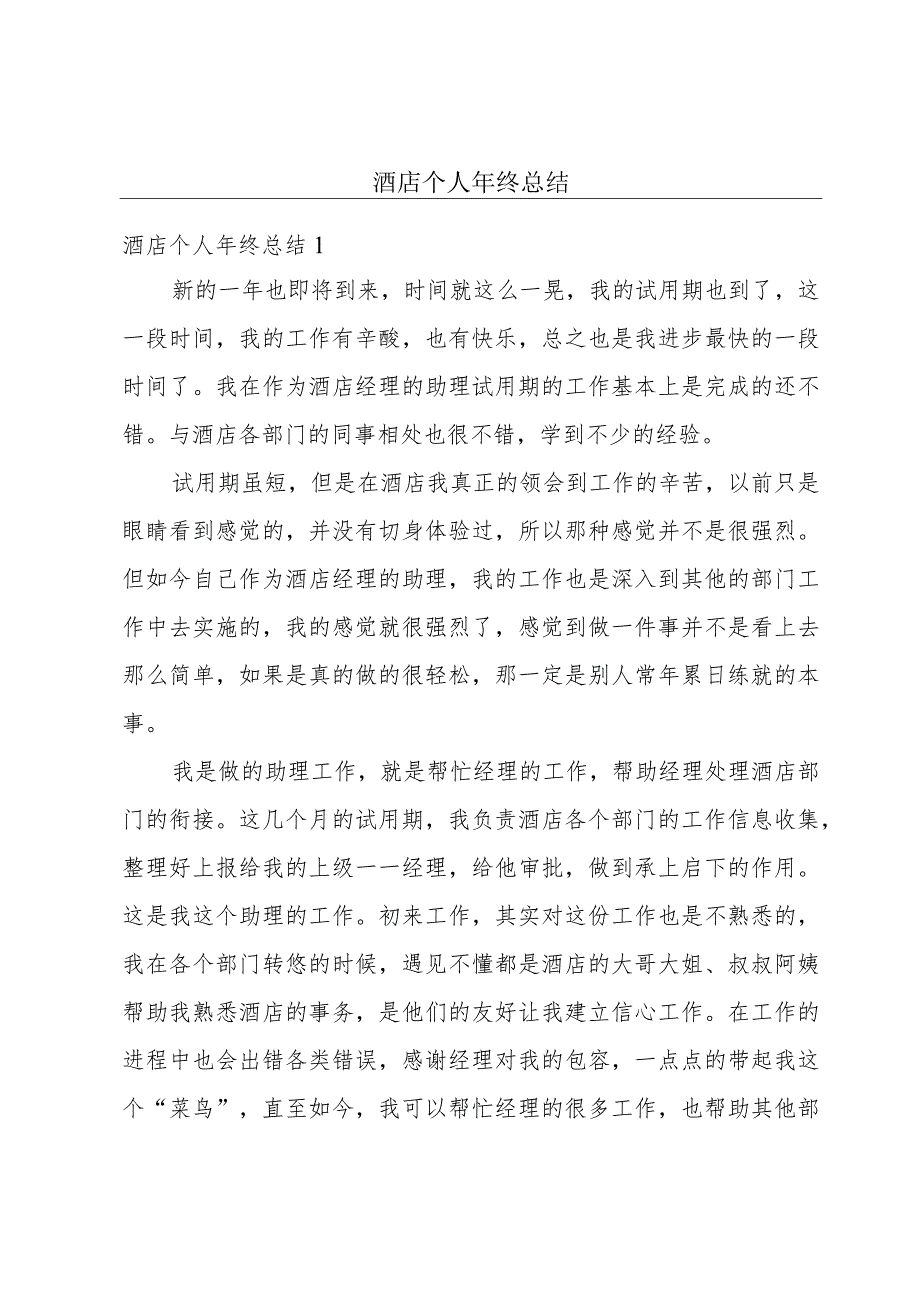 酒店个人年终总结
酒店个人年终总结 1
新的一年也即将到来，时间就这么一晃，我的试用期也到了，这
一段时间，我的工作有辛酸，也有快乐，总之也是我进步最快的一段
时间了。我在作为酒店经理的助理试用期的工作基本上是完成的还不
错。与酒店各部门的同事相处也很不错，学到不少的经验。
试用期虽短，但是在酒店我真正的领会到工作的辛苦，以前只是
眼睛看到感觉的，并没有切身体验过，所以那种感觉并不是很强烈。
但如今自己作为酒店经理的助理，我的工作也是深入到其他的部门工
作中去实施的，我的感觉就很强烈了，感觉到做一件事并不是看上去
那么简单，如果是真的做的很轻松，那一定是别人常年累日练就的本
事。
我是做的助理工作，就是帮忙经理的工作，帮助经理处理酒店部
门的衔接。这几个月的试用期，我负责酒店各个部门的工作信息收集，
整理好上报给我的上级一一经理，给他审批，做到承上启下的作用。
这是我这个助理的工作。初来工作，其实对这份工作也是不熟悉的，
我在各个部门转悠的时候，遇见不懂都是酒店的大哥大姐、叔叔阿姨
帮助我熟悉酒店的事务，是他们的友好让我建立信心工作。在工作的
进程中也会出错各类错误，感谢经理对我的包容，一点点的带起我这
个“菜鸟”，直至如今，我可以帮忙经理的很多工作，也帮助其他部